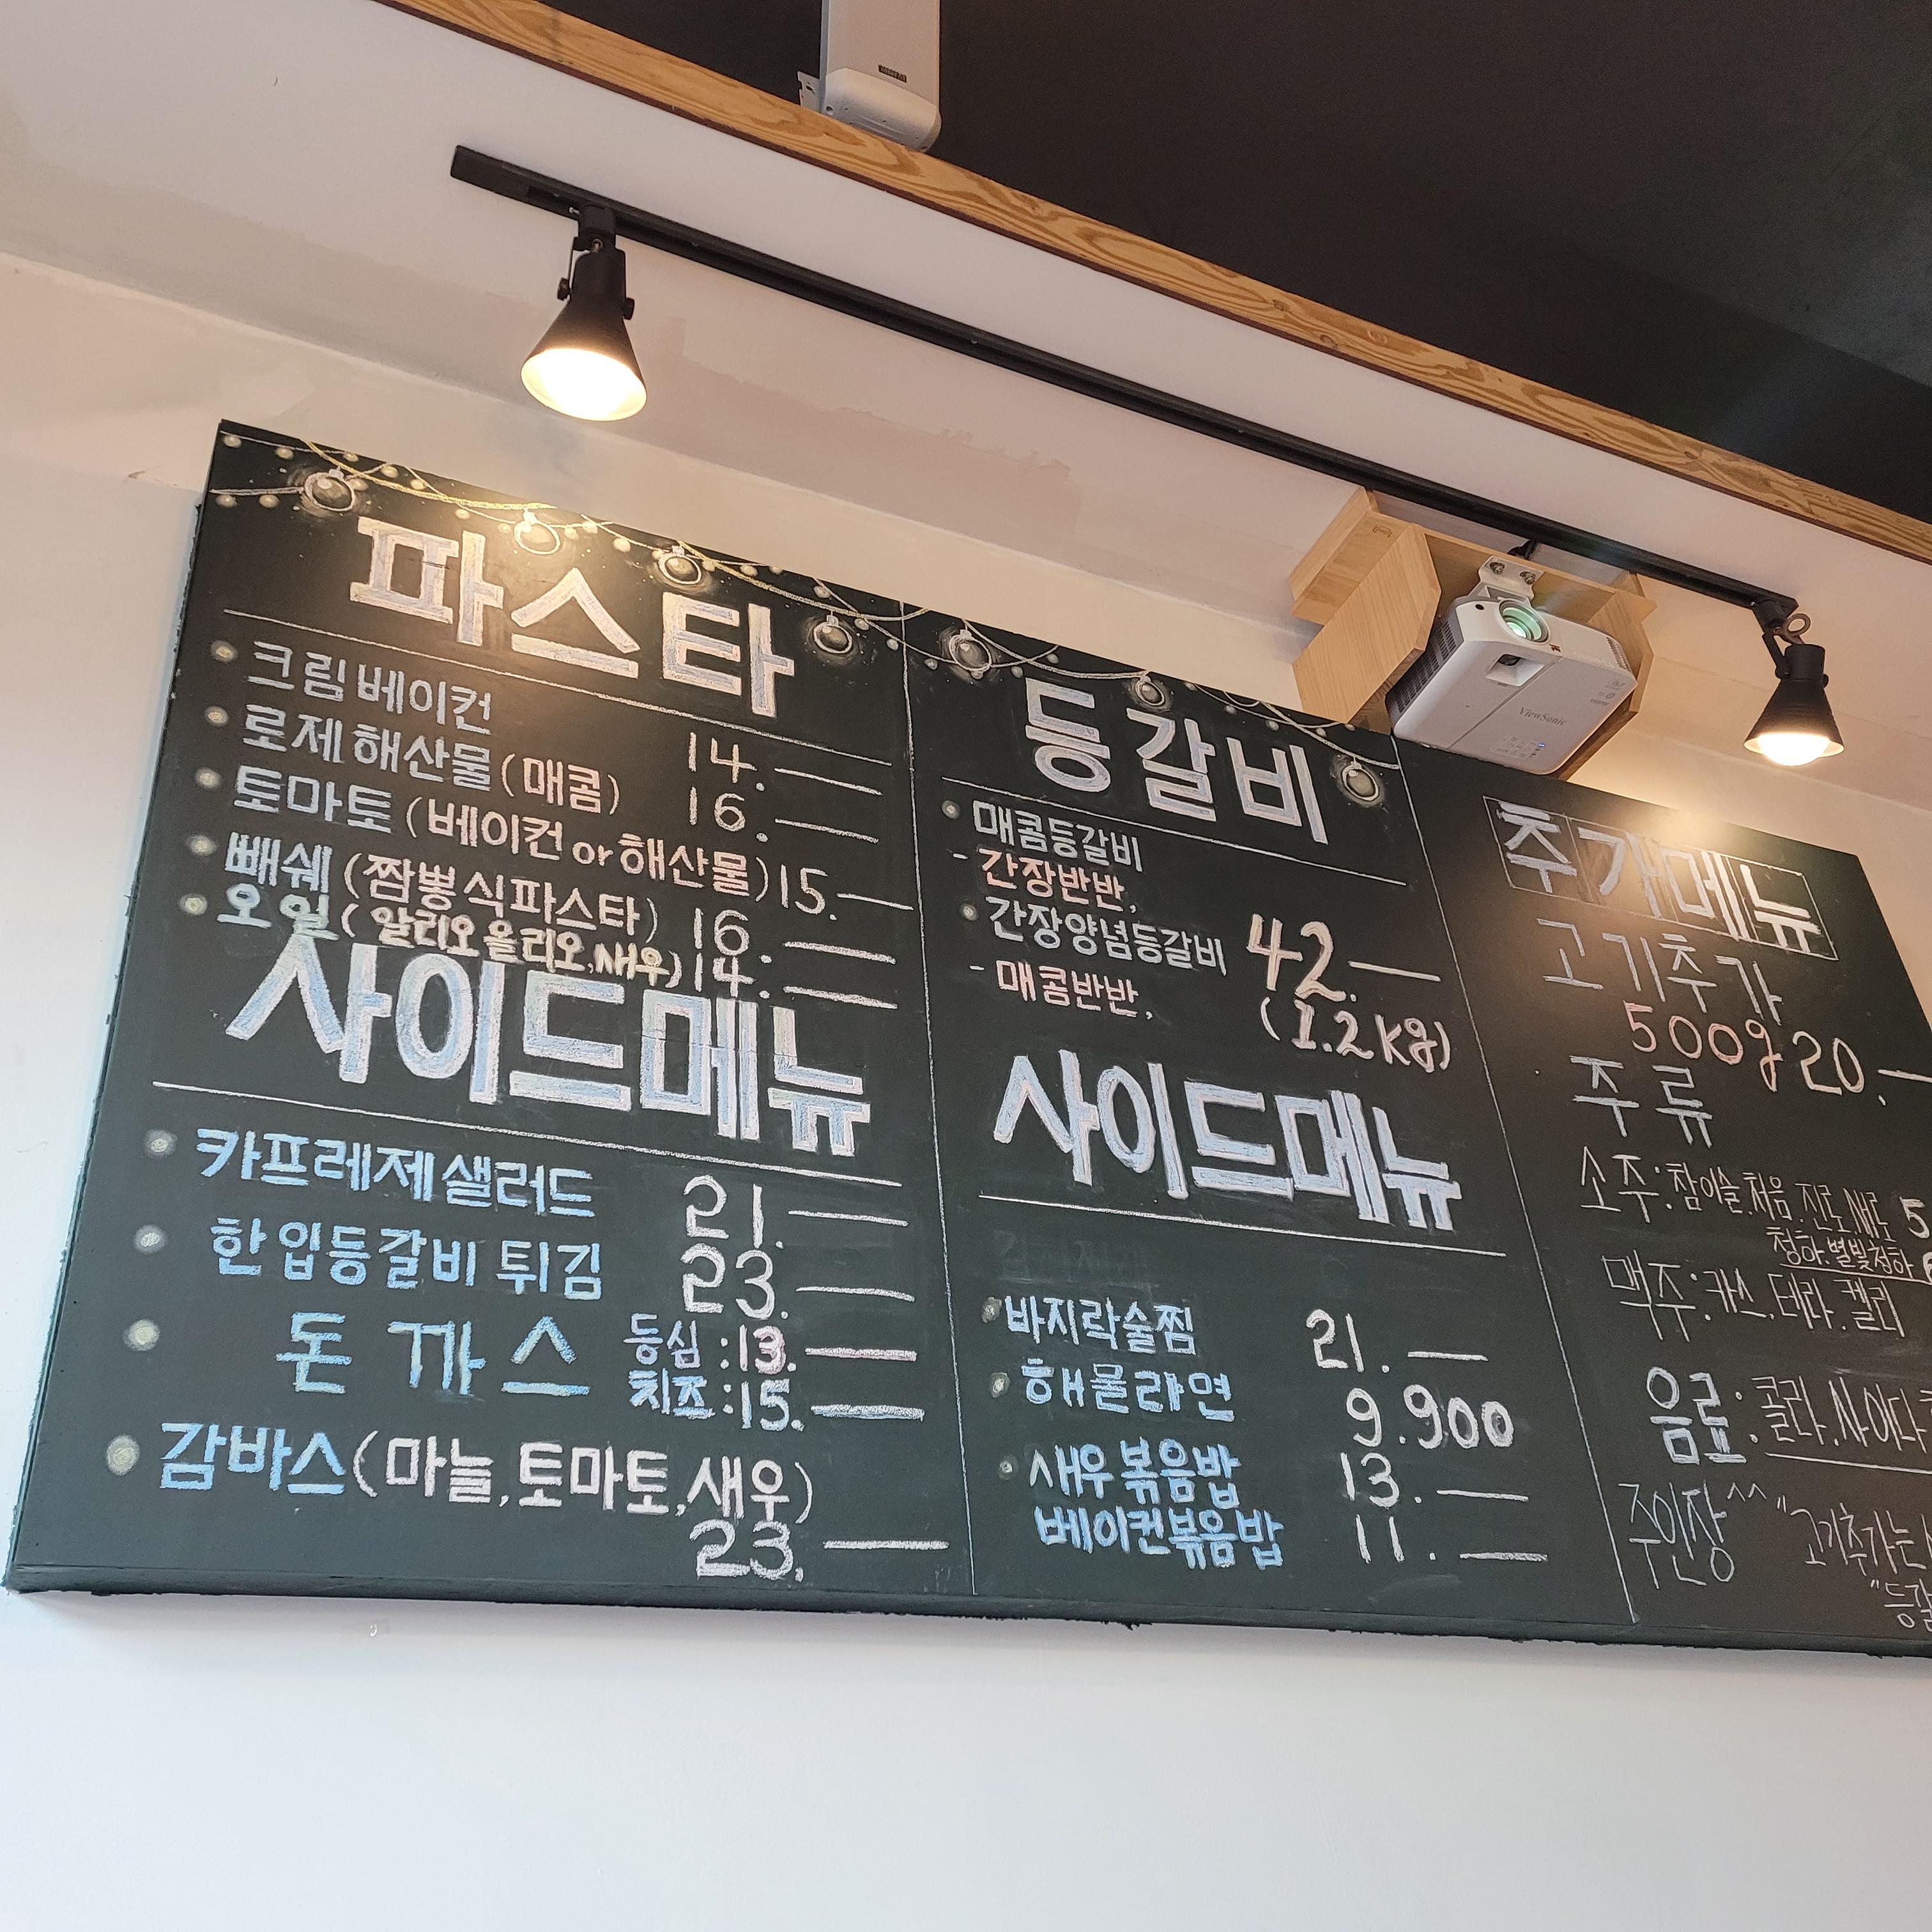 파스타
크림베이컨 14.—
로제해산물(매콤) 16.—
토마토(베이컨 or 해산물) 15.—
빼쉐(짬뽕식파스타) 16.—
오일(알리오올리오,새우) 14.—
사이드메뉴
카프레제샐러드 21.—
한입등갈비튀김 23.—
돈까스 등심:13.—
치즈:15.—
감바스(마늘,토마토,새우)
23,—
등갈비
매콤등갈비
- 간장반반,
간장양념등갈비 42.—
- 매콤반반, (1.2kg)
사이드메뉴
바지락술찜 21.—
해물라면 9.900
새우볶음밥 13.—
베이컨볶음밥 11.—
ViewSonic
추가메뉴
고기추가
500g 20,—
주류
소주:참이슬.처음.진로.새로 5
청하.별빛청하
맥주:카스.테라.켈리
음료:콜라.사이다
주인장^^ "고기추가는
"등갈